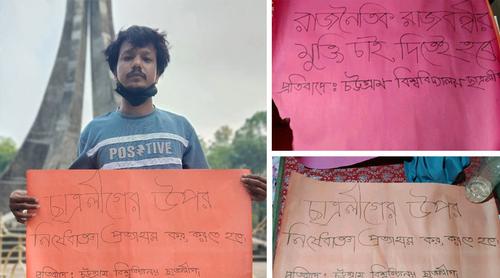 POSITIVE
ছাত্রলীগের উপর
নিষেধাজ্ঞা প্রত্যাহার কর, করতে হবে
প্রতিবাদে: চট্টগ্রাম বিশ্ববিদ্যালয় ছাত্রলীগ
রাজনৈতিক রাজবন্দীর
মুক্তি চাই, দিতেই হবে
প্রতিবাদে: চট্টগ্রাম বিশ্ববিদ্যালয় ছাত্রলীগ
ছাত্রলীগের উপর
নিষেধাজ্ঞা প্রত্যাহার কর, করতে হবে
প্রতিবাদে: চট্টগ্রাম বিশ্ববিদ্যালয় ছাত্রলীগ